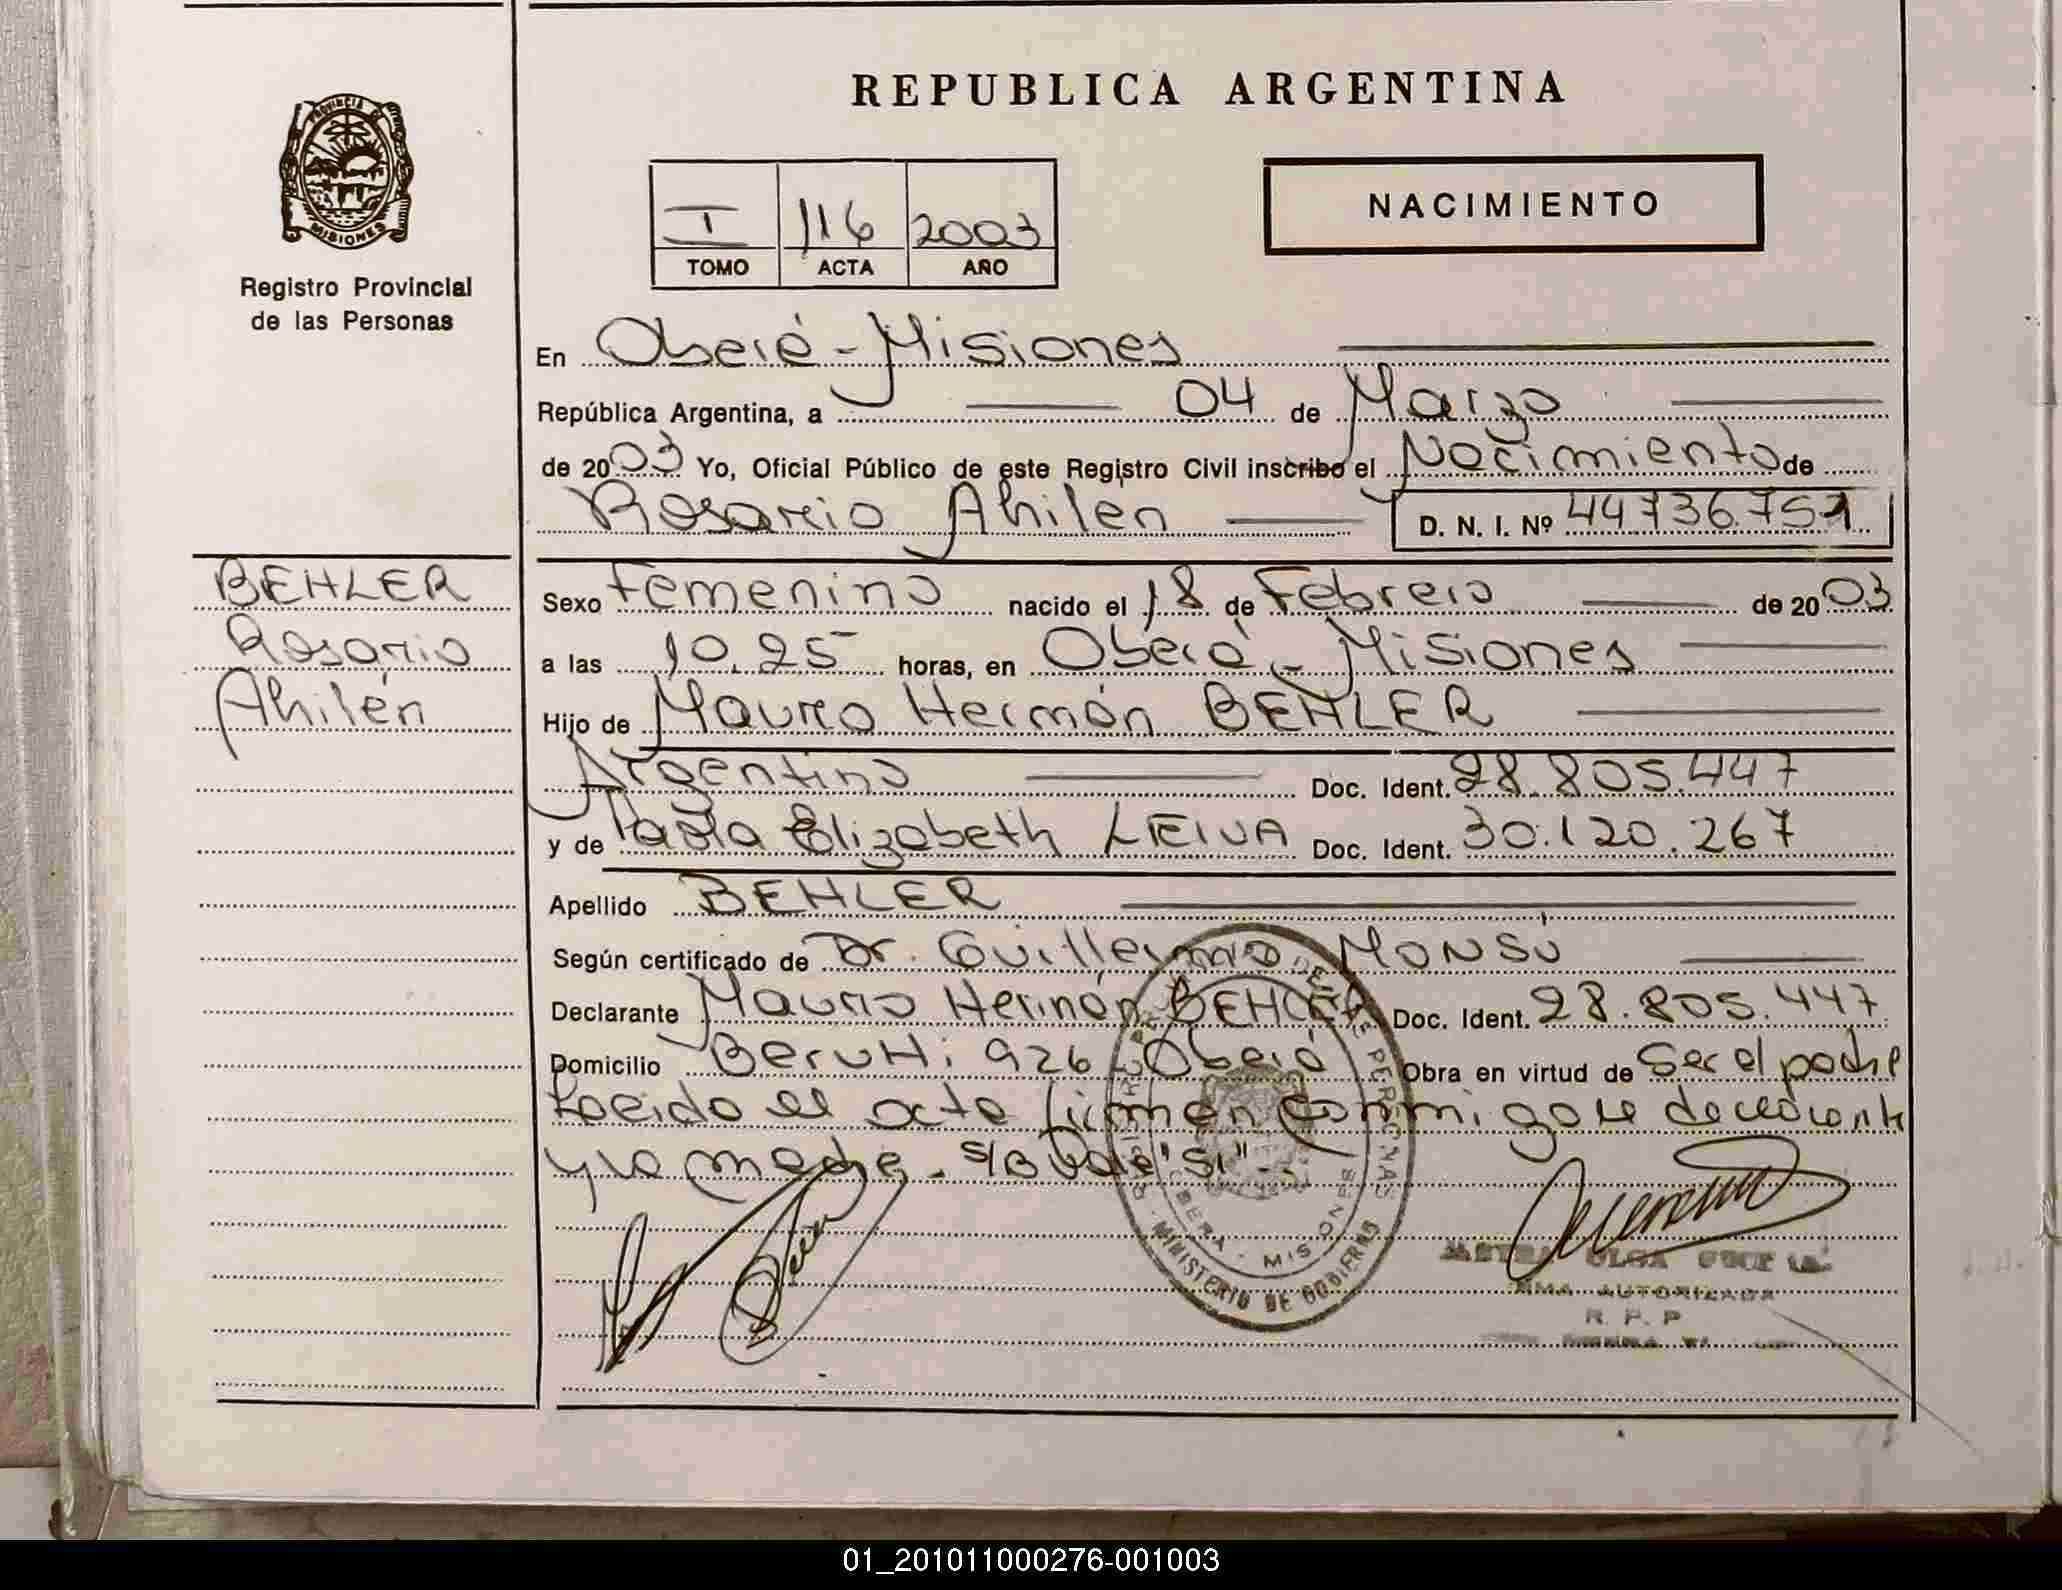 REPUBLICA ARGENTINA
PROVINCIA DE
MISIONES
Registro Provincial
de las Personas
I 116 2003
TOMO ACTA AÑO
NACIMIENTO
En Oberá - Misiones
República Argentina, a 04 de Marzo
de 2003 Yo, Oficial Público de este Registro Civil inscribo el Nacimiento de
Rosario Ahilen D. N. I. Nº 44736751
BEHLER
Rosario
Ahilén
Sexo Femenino nacido el 18 de Febrero de 2003
a las 10.25 horas, en Oberá - Misiones
Hijo de Mauro Hernán BEHLER
Argentino Doc. Ident. 28.805.447
y de Paola Elizabeth LEIVA Doc. Ident. 30.120.267
Apellido BEHLER
Según certificado de Dr. Guillermo MONSÚ
Declarante Mauro Hernán BEHLER Doc. Ident. 28.805.447
Domicilio Beruti 926 Oberá Obra en virtud de Ser el padre
Leido el acta firman conmigo el declarante
y la madre - S/B Vale "Si" -
MINISTERIO DE GOBIERNO
OBERA - MISIONES
DE PERSONAS
OLGA
FIRMA AUTORIZADA
R. P. P
01_201011000276-001003